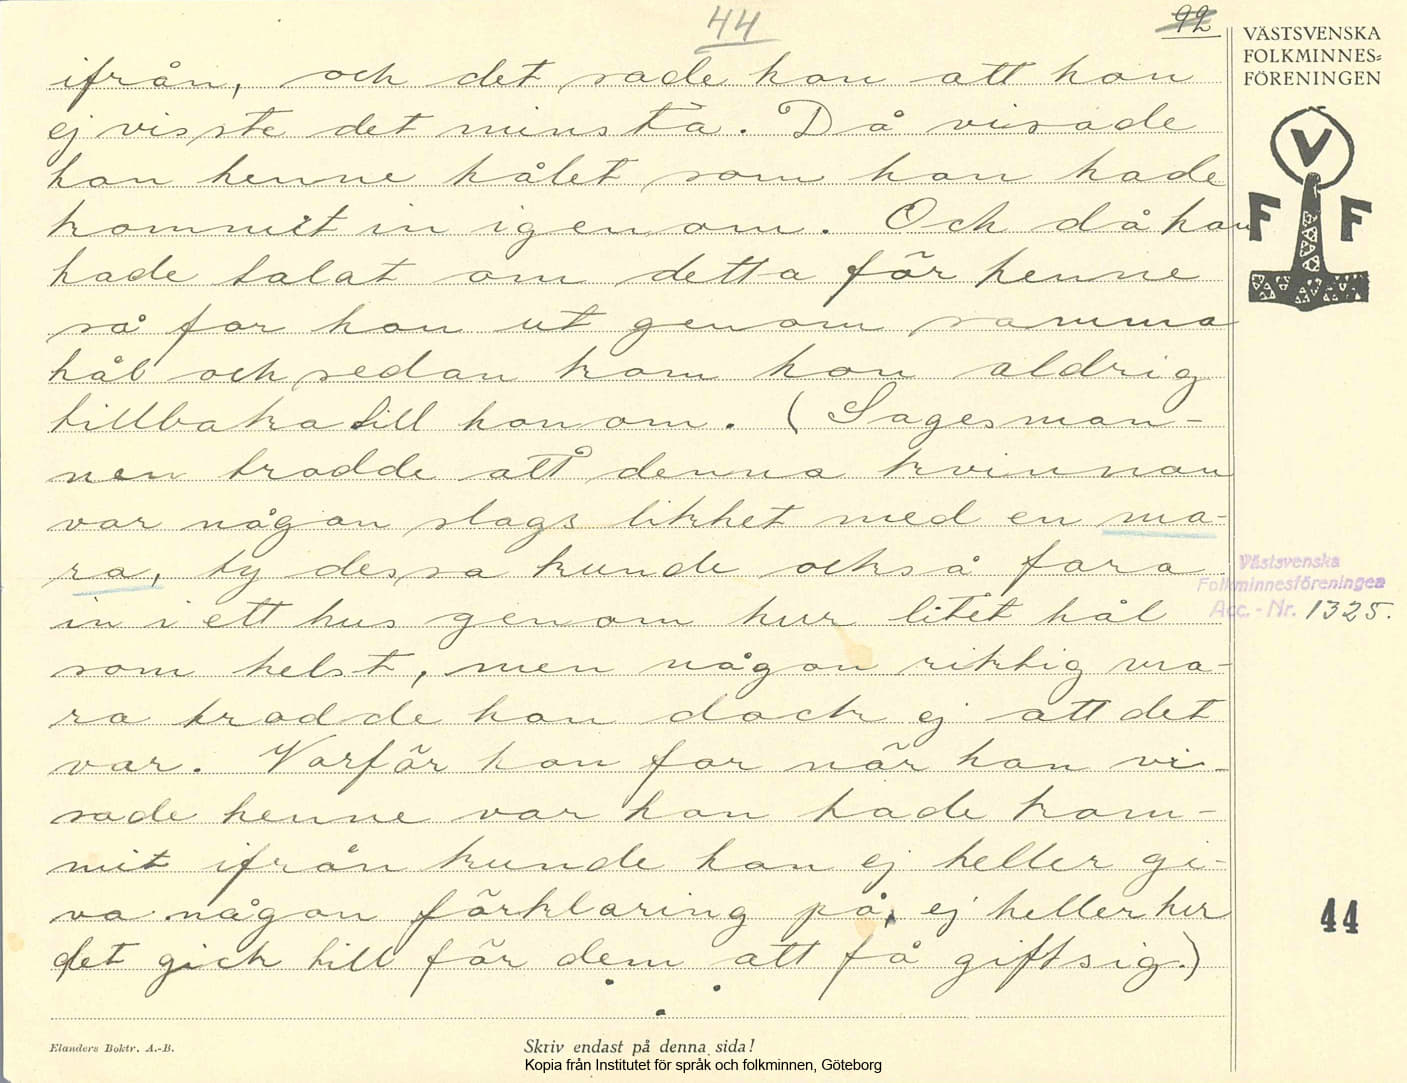 44
92
VÄSTSVENSKA
FOLKMINNES-
FÖRENINGEN
V
F F
ifrån, och det sade hon att hon
ej visste det minsta. Då visade
han henne hålet som hon hade
kommit in igenom. Och då han
hade talat om detta för henne
så for hon ut genom samma
hål och sedan kom hon aldrig
tillbaka till honom. (Sagesman-
nen trodde att denna kvinnan
var någon slags likhet med en ma-
ra, ty dessa kunde också fara
in i ett hus genom hur litet hål
som helst, men någon riktig ma-
ra trodde han dock ej att det
var. Varför hon for när han vi-
sade henne var hon hade kom-
mit ifrån kunde han ej heller gi-
va någon förklaring på, ej heller hur
det gick till för dem att få giftsig.)
Västsvenska
Folkminnesföreningen
Acc. - Nr. 1325.
44
Elanders Boktr. A.-B.
Skriv endast på denna sida!
Kopia från Institutet för språk och folkminnen, Göteborg